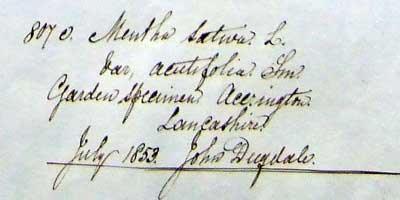 807 c. Mentha sativa. L.
var, acutifolia. Sm.
Garden specimen Accrington
Lancashire.
July 1853. John Dugdale.